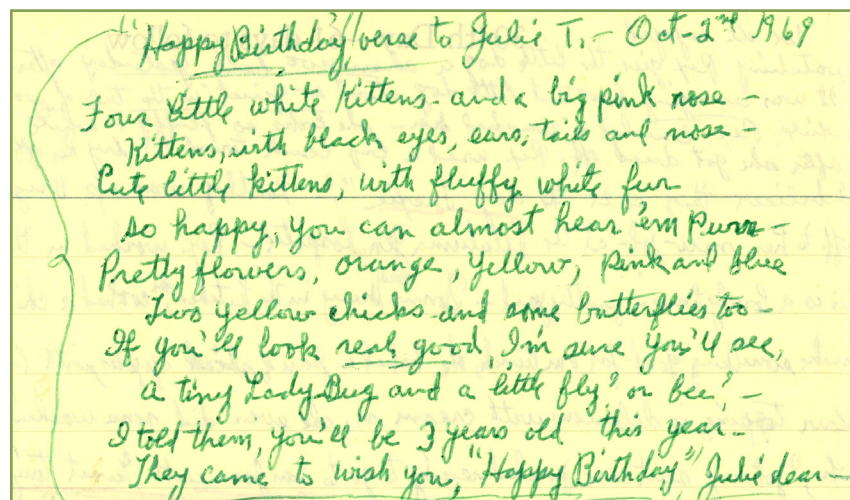 "Happy Birthday" verse to Julie T. - Oct-2nd 1969
Four little white kittens - and a big pink rose -
Kittens, with black eyes, ears, tails and nose -
Cute little kittens, with fluffy white fur
so happy, you can almost hear 'em purr -
Pretty flowers, orange, yellow, pink and blue
Two yellow chicks and some butterflies too -
If you'll look real good, I'm sure you'll see,
a tiny Lady Bug and a little fly "or bee", -
I told them, you'll be 3 years old this year -
They came to wish you, "Happy Birthday" Julie dear -